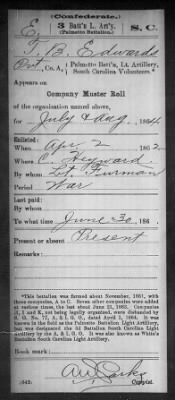 (Confederate.)
E 3 Batt'n L. Art'y. S. C.
(Palmetto Battalion.)
T. B. Edwards
Pvt, Co. A, Palmetto Batt'n, Lt. Artillery,
South Carolina Volunteers.*
Appears on
Company Muster Roll
of the organization named above,
for July & Aug, 1864.
Enlisted:
When Apr 2, 1862.
Where C. Heyward.
By whom Lt. Furman
Period War
Last paid:
By whom
To what time June 30, 186 .
Present or absent Present
Remarks:
*This battalion was formed about November, 1861, with
three companies, A to C. Seven other companies were added
at various times, the last about June 21, 1862. Companies
H, I and K, not being legally organized, were disbanded by
S. O. No. 77, A. & I. G. O., dated April 1, 1864. It was known
in the field as the Palmetto Battalion Light Artillery, but
was designated the 3d Battalion South Carolina Light
Artillery by the A. & I. G. O. It was also known as White's
Battalion South Carolina Light Artillery.
Book mark:
(642)
Copyist.